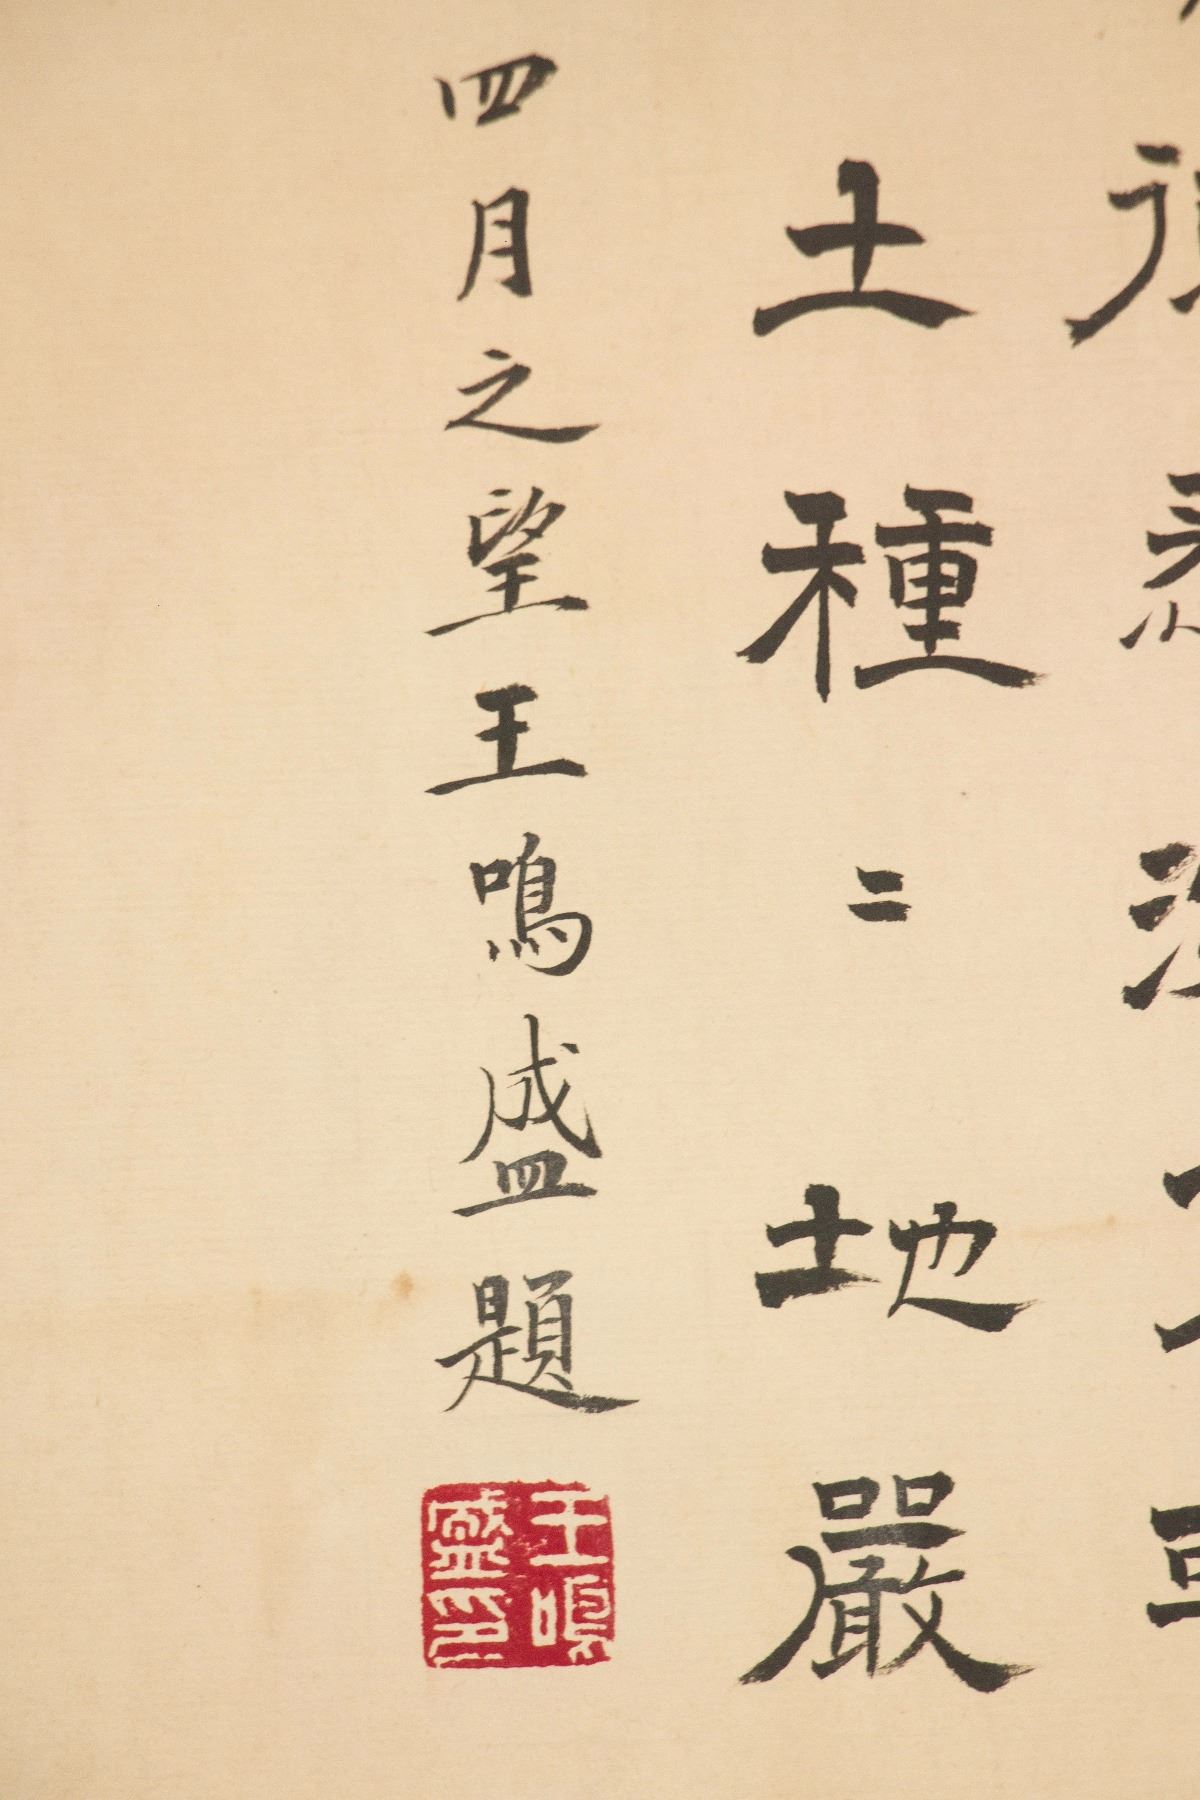 土種二地嚴
四月之望王鳴盛題
王鳴
盛印